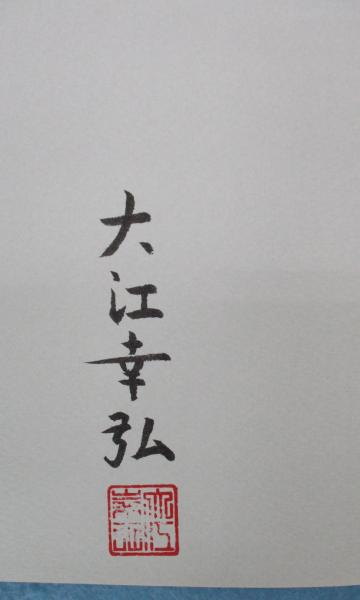 大江幸弘